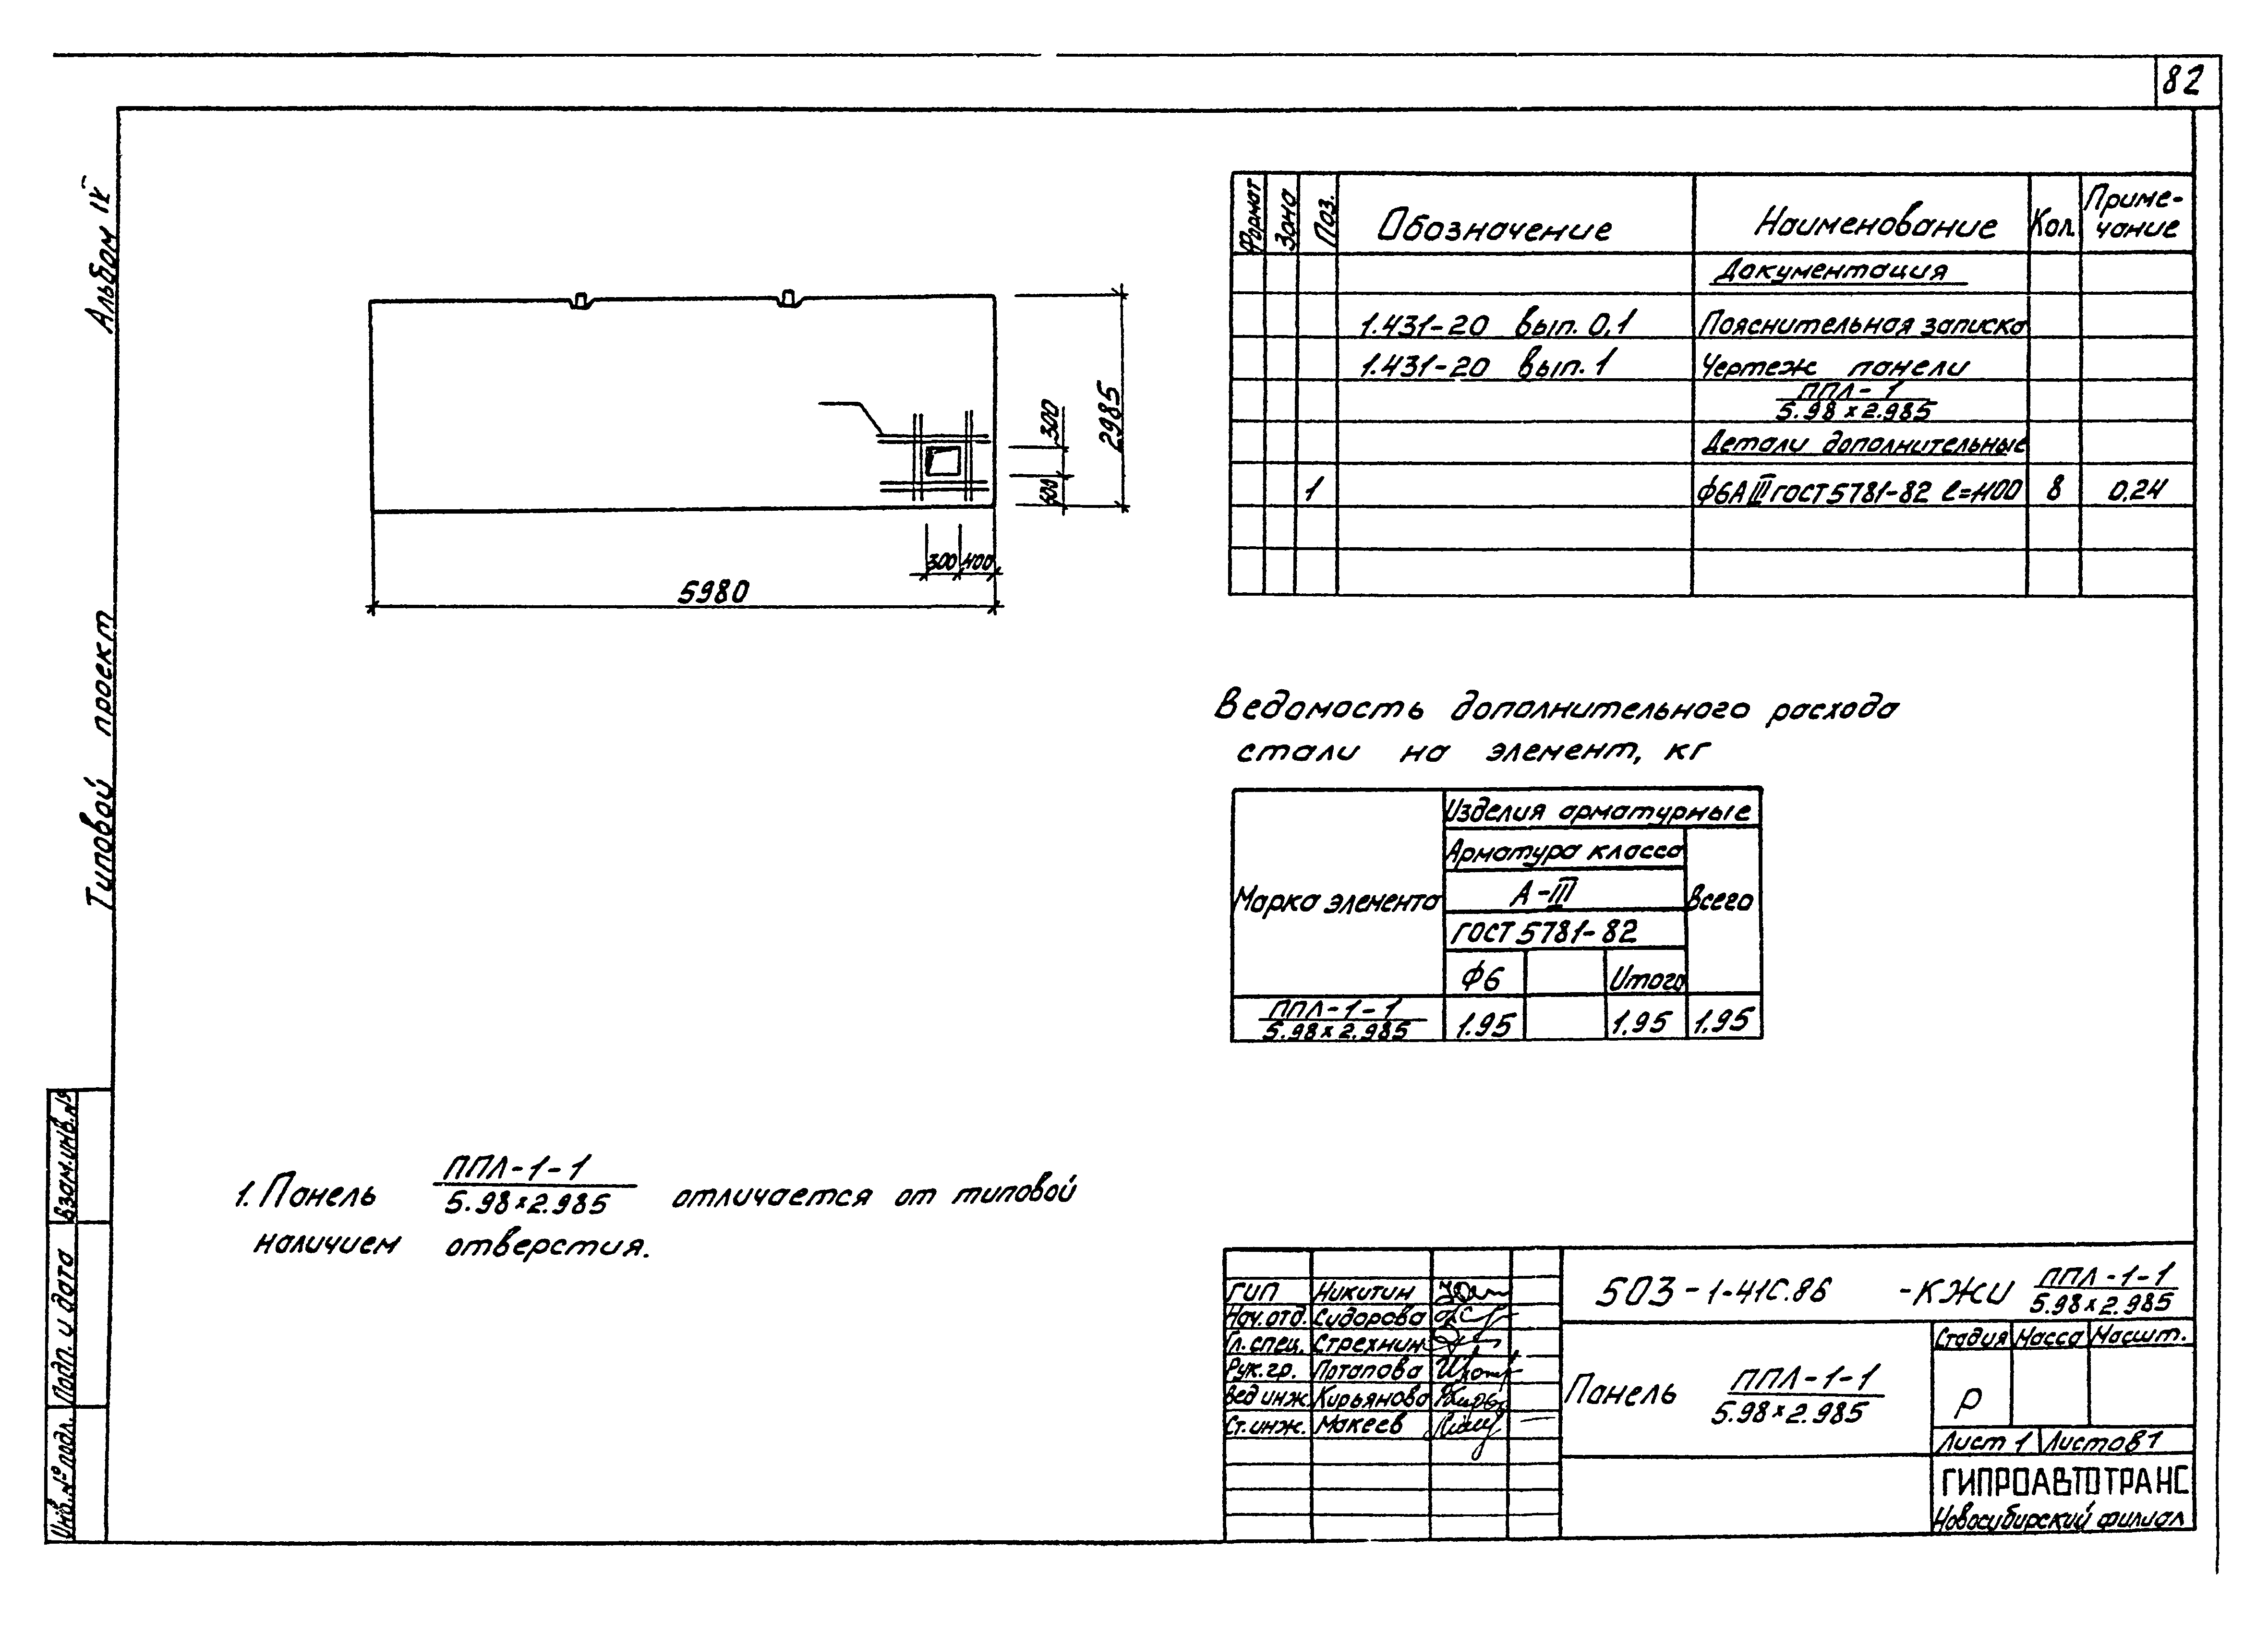 82
Альбом IV
Типовой проект
2985
300
600
300 400
5980
Формат Зона Поз. Обозначение Наименование Кол. Приме-
чание
Документация
1.431-20 вып. 0,1 Пояснительная записка
1.431-20 вып. 1 Чертеж панели
ППЛ-1
5.98×2.985
Детали дополнительные
1 ф6АIII ГОСТ 5781-82 ℓ=1100 8 0,24
Ведомость дополнительного расхода
стали на элемент, кг
Марка элемента
Изделия арматурные
Арматура класса
А-III
Всего
ГОСТ 5781-82
Ф6 Итого
ППЛ-1-1
5.98×2.985
1.95 1.95 1,95
1. Панель ППЛ-1-1
5.98×2.985 отличается от типовой
наличием отверстия.
Взам.инв.№
Подп. и дата
Инв.№ подл.
ГИП Никитин
Нач.отд. Сидорова
Гл.спец. Стрехнин
Рук.гр. Потапова
Вед инж. Кирьянова
Ст.инж. Макеев
503-1-41С.86 -КЖИ ППЛ-1-1
5.98×2.985
Панель ППЛ-1-1
5.98×2.985
Стадия Масса Масшт.
Р
Лист 1 Листов 1
ГИПРОАВТОТРАНС
Новосибирский филиал